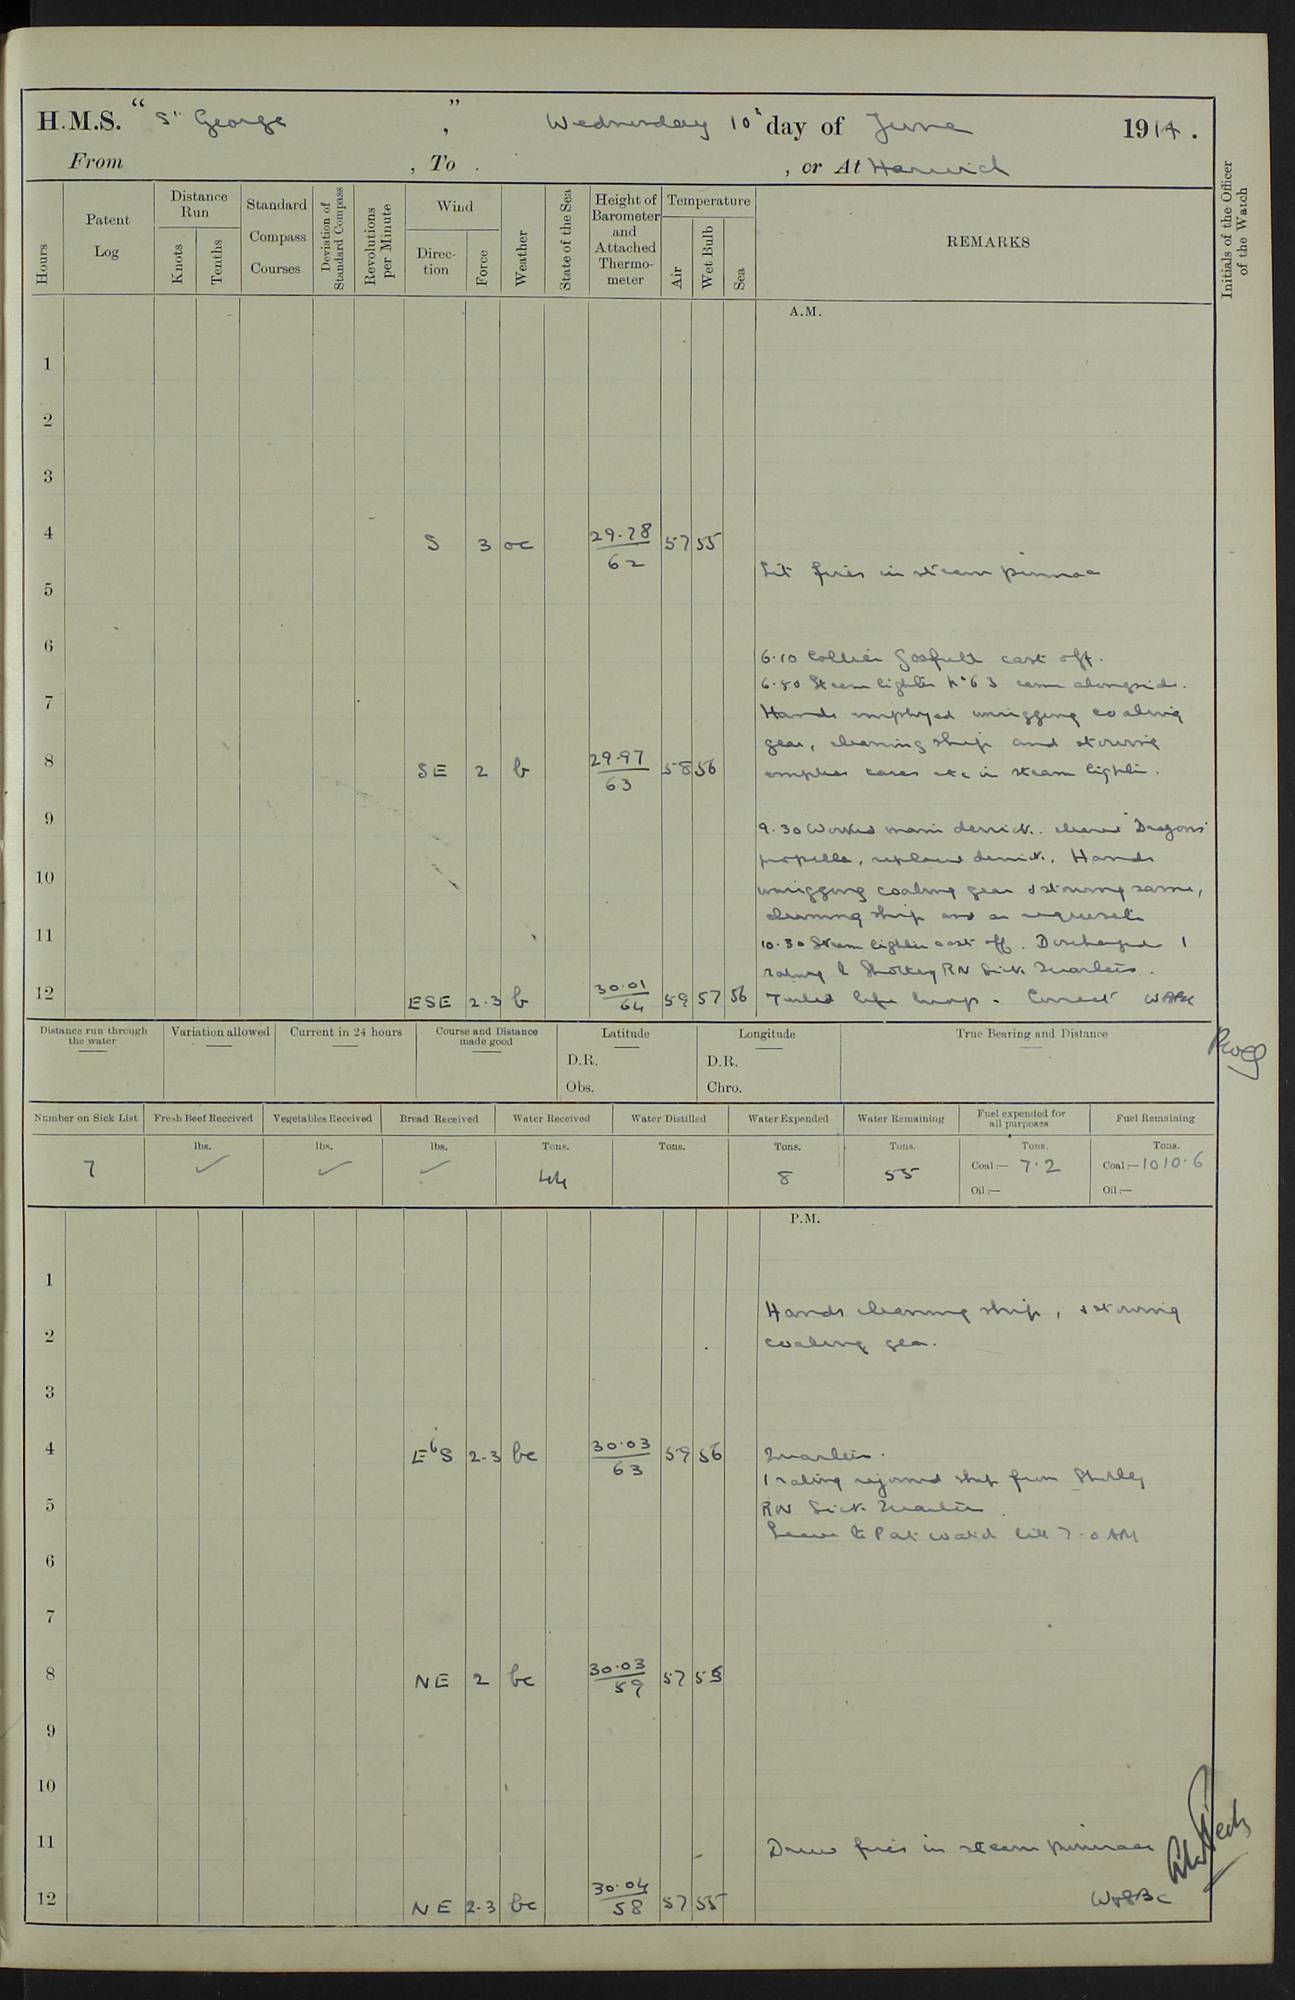 H.M.S. "St George", Wednesday 10th day of June 1914.
From , To . , or At Harwich
Hours
Patent Log
Distance Run
Knots
Tenths
Standard Compass Courses
Deviation of Standard Compass
Revolutions per Minute
Wind
Direction
Force
Weather
State of the Sea
Height of Barometer and Attached Thermometer
Temperature
Air
Wet Bulb
Sea
REMARKS
Initials of the Officer of the Watch
A.M.
1
2
3
4 S 3 oc 29.78 62 57 55
Lit fires in steam pinnace
5
6
6.10 Collier cast off.
6.50 Steam lighter No 63 came alongside.
7
Hands employed unrigging coaling
gear, cleaning ship and stowing
8 SE 2 b 29.97 63 58 56
empties cases etc in steam lighter.
9
9.30 Worked main derrick. cleared Dragons
propeller, replaced derrick. Hands
10
unrigging coaling gear & stowing same,
cleaning ship and as requisite
11
10.30 Steam lighter cast off. Discharged 1
rating to Shotley RN Sick Quarters.
12 ESE 2.3 b 30.01 64 59 57 56
Tested life buoys. Correct
Distance run through the water
Variation allowed
Current in 24 hours
Course and Distance made good
Latitude
D.R.
Obs.
Longitude
D.R.
Chro.
True Bearing and Distance
Number on Sick List
Fresh Beef Received
Vegetables Received
Bread Received
Water Received
Water Distilled
Water Expended
Water Remaining
Fuel expended for all purposes
Fuel Remaining
lbs. lbs. lbs. Tons. Tons. Tons. Tons. Tons. Tons.
7 ✓ ✓ ✓ 44 8 55 Coal:— 7.2 Coal:— 1010.6
Oil:— Oil:—
P.M.
1
Hands cleaning ship, & stowing
2
coaling gear.
3
4 E b S 2.3 bc 30.03 63 59 56
Quarters.
1 rating rejoined ship from Shotley
5
RN Sick Quarters.
Leave to Part Watch till 7.0 AM
6
7
8 NE 2 bc 30.03 59 57 55
9
10
11
Drew fires in steam pinnace
12 NE 2.3 bc 30.04 58 57 55